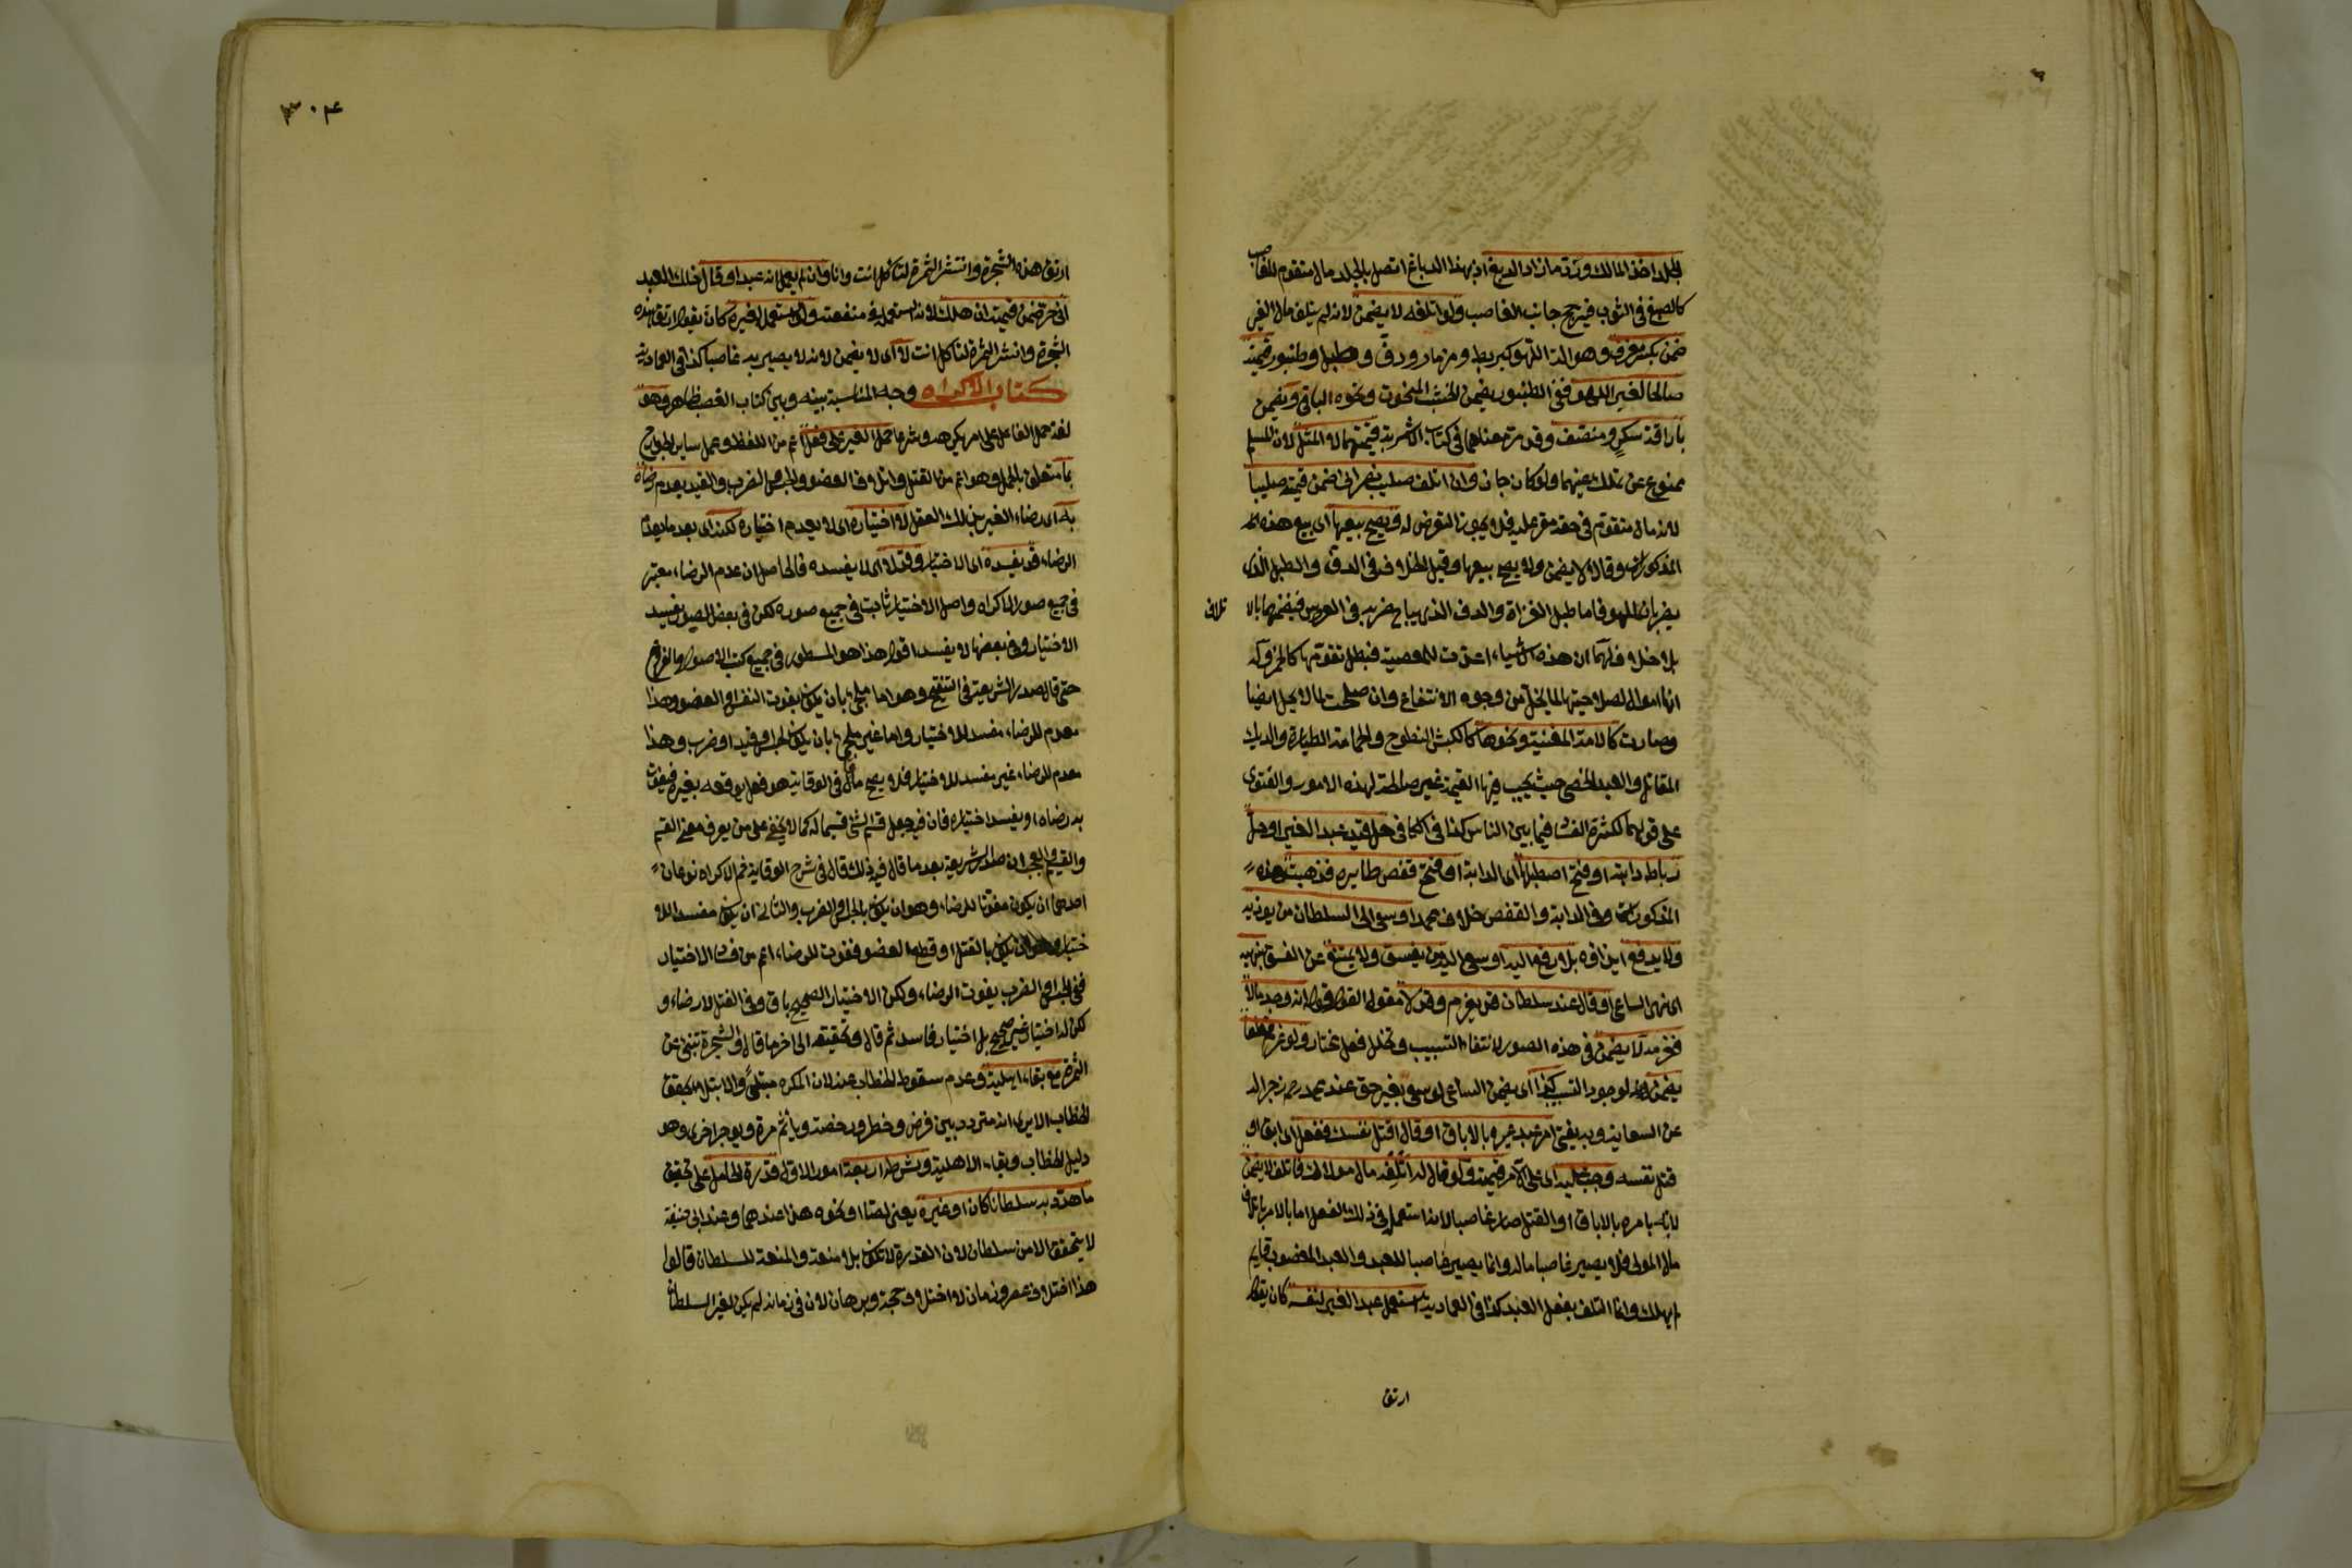 الجلد اخذ المالك ورد ما زاد الدبغ اذ بهذا الدباغ اتصل بالجلد مال متقوم للغاصب
كالصبغ في الثوب فيرجح جانب الغاصب ولو اتلفه لا يضمن لانه لم يتلف مال الغير
ضمن بكسر معزف وهو الة اللهو كبربط ومزمار ودف وطبل وطنبور قيمته
صالحا لغير اللهو ففي الطنبور يضمن الخشب المنحوت ونحوه الباقي ويضمن
باراقة سكر ومنصف وقد مر معناهما في كتاب الاشربة قيمتهما لا المثل لان المسلم
ممنوع عن تملك عينهما ولو كان جاز وان اتلف صليب نصراني ضمن قيمته صليبا
لانه مال متقوم في حقه مقر عليه فلا يجوز التعرض له ويصح بيعها اي بيع هذه
المذكورات وقالا لا يضمن ولا يصح بيعها وقيل الخلاف في الدف والطبل الذي
يضربان للهو فاما طبل الغزاة والدف الذي يباح ضربه في العرس فيضمنهما بالا تلاف
بلا خلاف لهما ان هذه الاشياء اعدت للمعصية فبطل تقومها كالخمر وله
انها اموال لصلاحيتها لما يحل من وجوه الانتفاع وان صلحت لما لا يحل ايضا
وصارت كالامة المغنية ونحوها كالكبش النطوح والحمامة الطيارة والديك
المقاتل والعبد الخصي حيث يجب فيها القيمة غير صالحة لهذه الامور والفتوى
على قولهما لكثرة الفساد فيما بين الناس كذا في الكافي حل قيد عبد الغير او حل
رباط دابته او فتح اصطبلها اي الدابة او فتح قفص طايره فذهبت هذه
المذكورات وفي الدابة والقفص خلاف محمد او سعى الى السلطان من يوذيه
ولا يدفع ايذاؤه بلا رفع اليه او سعى اليه من يفسق ولا يمتنع عن الفسق بنهيه
اي نهي الساعي او قال عند سلطان قد يغرم وقد لا مقول القول قوله انه وجد مالا
فغرمه لا يضمن في هذه الصور لانتفاء التسبيب وتخلل فعل مختار ولو غرم قطعا
يضمن لوجود التسبيب كذا اي يضمن الساعي لو سعى بغير حق عند محمد رحمه زجرا له
عن السعاية وبه يفتى امر عبد غيره بالاباق او قال اقتل نفسك ففعل اي ابق او
قتل نفسه وجب عليه اي على الآمر قيمته ولو قال له اتلف مال مولاك فاتلف لا يضمن
لانه بامره بالاباق او القتل صار غاصبا لانه استعمله في ذلك الفعل اما بالامر باتلاف
مال المولى فلا يصير غاصبا ماله وانما يصير غاصبا للعبد والعبد المغصوب قايم
لم يهلك وانما التلف بفعل العبد كذا في العمادية استعمل عبد الغير لنفسه كان يقول
ارتق
٣٠٤
ارتق هذه الشجرة وانتشر الثمرة لتاكل انت وانا وان لم يعلم انه عبد او قال ذلك العبد
اني حر ضمن قيمته ان هلك لانه استعمله في منفعته ولو استعمله لغيره كان يقول ارتق هذه
الشجرة وانتشر الثمرة لتاكل انت لا اي لا يضمن لانه لا يصير به غاصبا كذا في العمادية
كتاب الاكراه وجه المناسبة بينه وبين كتاب الغصب ظاهر وهو
لغة حمل الفاعل على امر يكرهه وشرعا حمل الغير على فعل اعم من اللفظ وعمل ساير الجوارح
بما متعلق بالحمل وهو اعم من القتل واتلاف العضو والحبس الضرب والقيد يعدم رضاه
به اي رضاء الغير بذلك الفعل لا اختياره اي لا يعدم اختياره لكنه اي بعد ما يعدم
الرضاء قد يفسده اي الاختيار وقد لا اي لا يفسده فالحاصل ان عدم الرضاء معتبر
في جميع صور الاكراه واصل الاختيار ثابت في جميع صوره لكن في بعض الصور يفسد
الاختيار وفي بعضها لا يفسد اقول هذا هو المسطور في جميع كتب الاصول والفروع
حتى قال صدر الشريعة في التنقيح وهو اما ملجئ بان يكون بفوت النفس او العضو وهذا
معدم للرضاء مفسد للاختيار واما غير ملجئ بان يكون بحبس او قيد او ضرب وهذا
معدم للرضاء غير مفسد للاختيار فلا يصح ما في الوقاية هو فعل يوقعه بغيره فيفوت
به رضاه او يفسد اختياره فان فيه جعل قسم الشئ قسيما له كما لا يخفى على من يعرف معنى القسم
والقسيم والعجب ان صدر الشريعة بعد ما قال فيه ذلك قال في شرح الوقاية ثم الاكراه نوعان
احدهما ان يكون مفوتا للرضاء وهو ان يكون بالحبس او الضرب والثاني ان يكون مفسدا للا
ختيار وهو ان يكون بالقتل او قطع العضو ففوت الرضاء اعم من فساد الاختيار
ففي الحبس او الضرب يفوت الرضاء ولكن الاختيار الصحيح باق وفي القتل لا رضاء و
لكن له اختيار غير صحيح بل اختيار فاسد ثم قال وتحقيقه الى اخر ما قال والشجرة تنبئ عن
الثمرة مع بقاء اهليته وعدم سقوط الخطاب عنه لان المكره مبتلى والابتلاء يحقق
الخطاب الا يرى انه متردد بين فرض وحظر ورخصة وياثم مرة ويوجر اخرى وهو
دليل الخطاب وبقاء الاهلية وشرطه اربعة امور الاول قدرة الحامل على تحقيق
ما هدد به سلطانا كان او غيره يعني لصا او نحوه هذا عندهما وعند ابي حنيفة
لا يتحقق الا من سلطان لان القدرة لا تكون بلا منعة والمنعة للسلطان قالوا
هذا اختلاف عصر وزمان لا اختلاف حجة وبرهان لان في زمانه لم يكن لغير السلطان